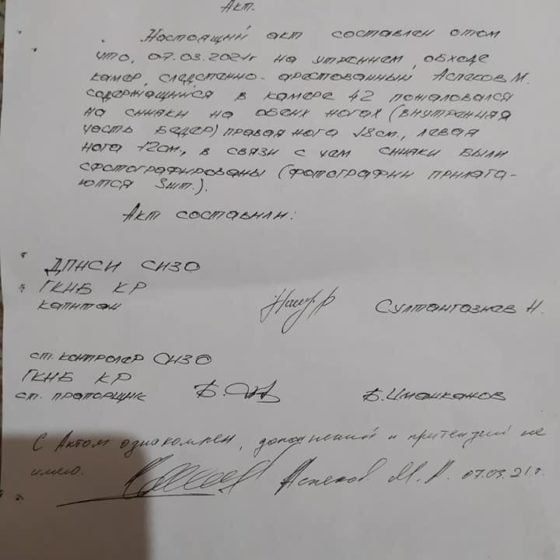 Акт.
Настоящий акт составлен о том
что, 07.03.2021г на утреннем, обходе
камер, следственно-арестованный Аспеков М.
содержащийся в камере 42 пожаловался
на синяки на обеих ногах (внутренняя
часть бедер) правая нога 18см, левая
нога -12см, в связи с чем синяки были
сфотографированы (фотографии прилага-
ются 3шт.).
Акт составили:
ДПНСИ СИЗО
ГКНБ КР
капитан Султангазиев Н.
ст. контролер СИЗО
ГКНБ КР
ст. прапорщик Б. Имашканов
С Актом ознакомлен, дополнений и притензий не
имею. Аспеков М. А. 07.03.21г.